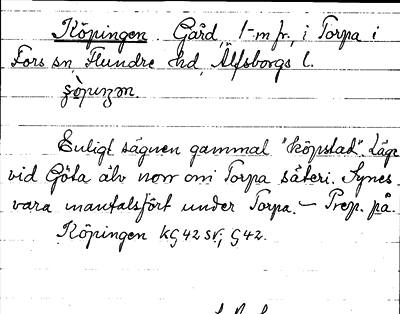 Köpingen Gård, 1-m fr., i Torpa i
Fors sn Flundre hd, Älfsborgs l.
Enligt sägnen gammal "köpstad". Läge
vid Göta älv norr om Torpa säteri. Synes
vara mantalsfört under Torpa. — Prep. på.
Köpingen KG 42 SV; G 42.